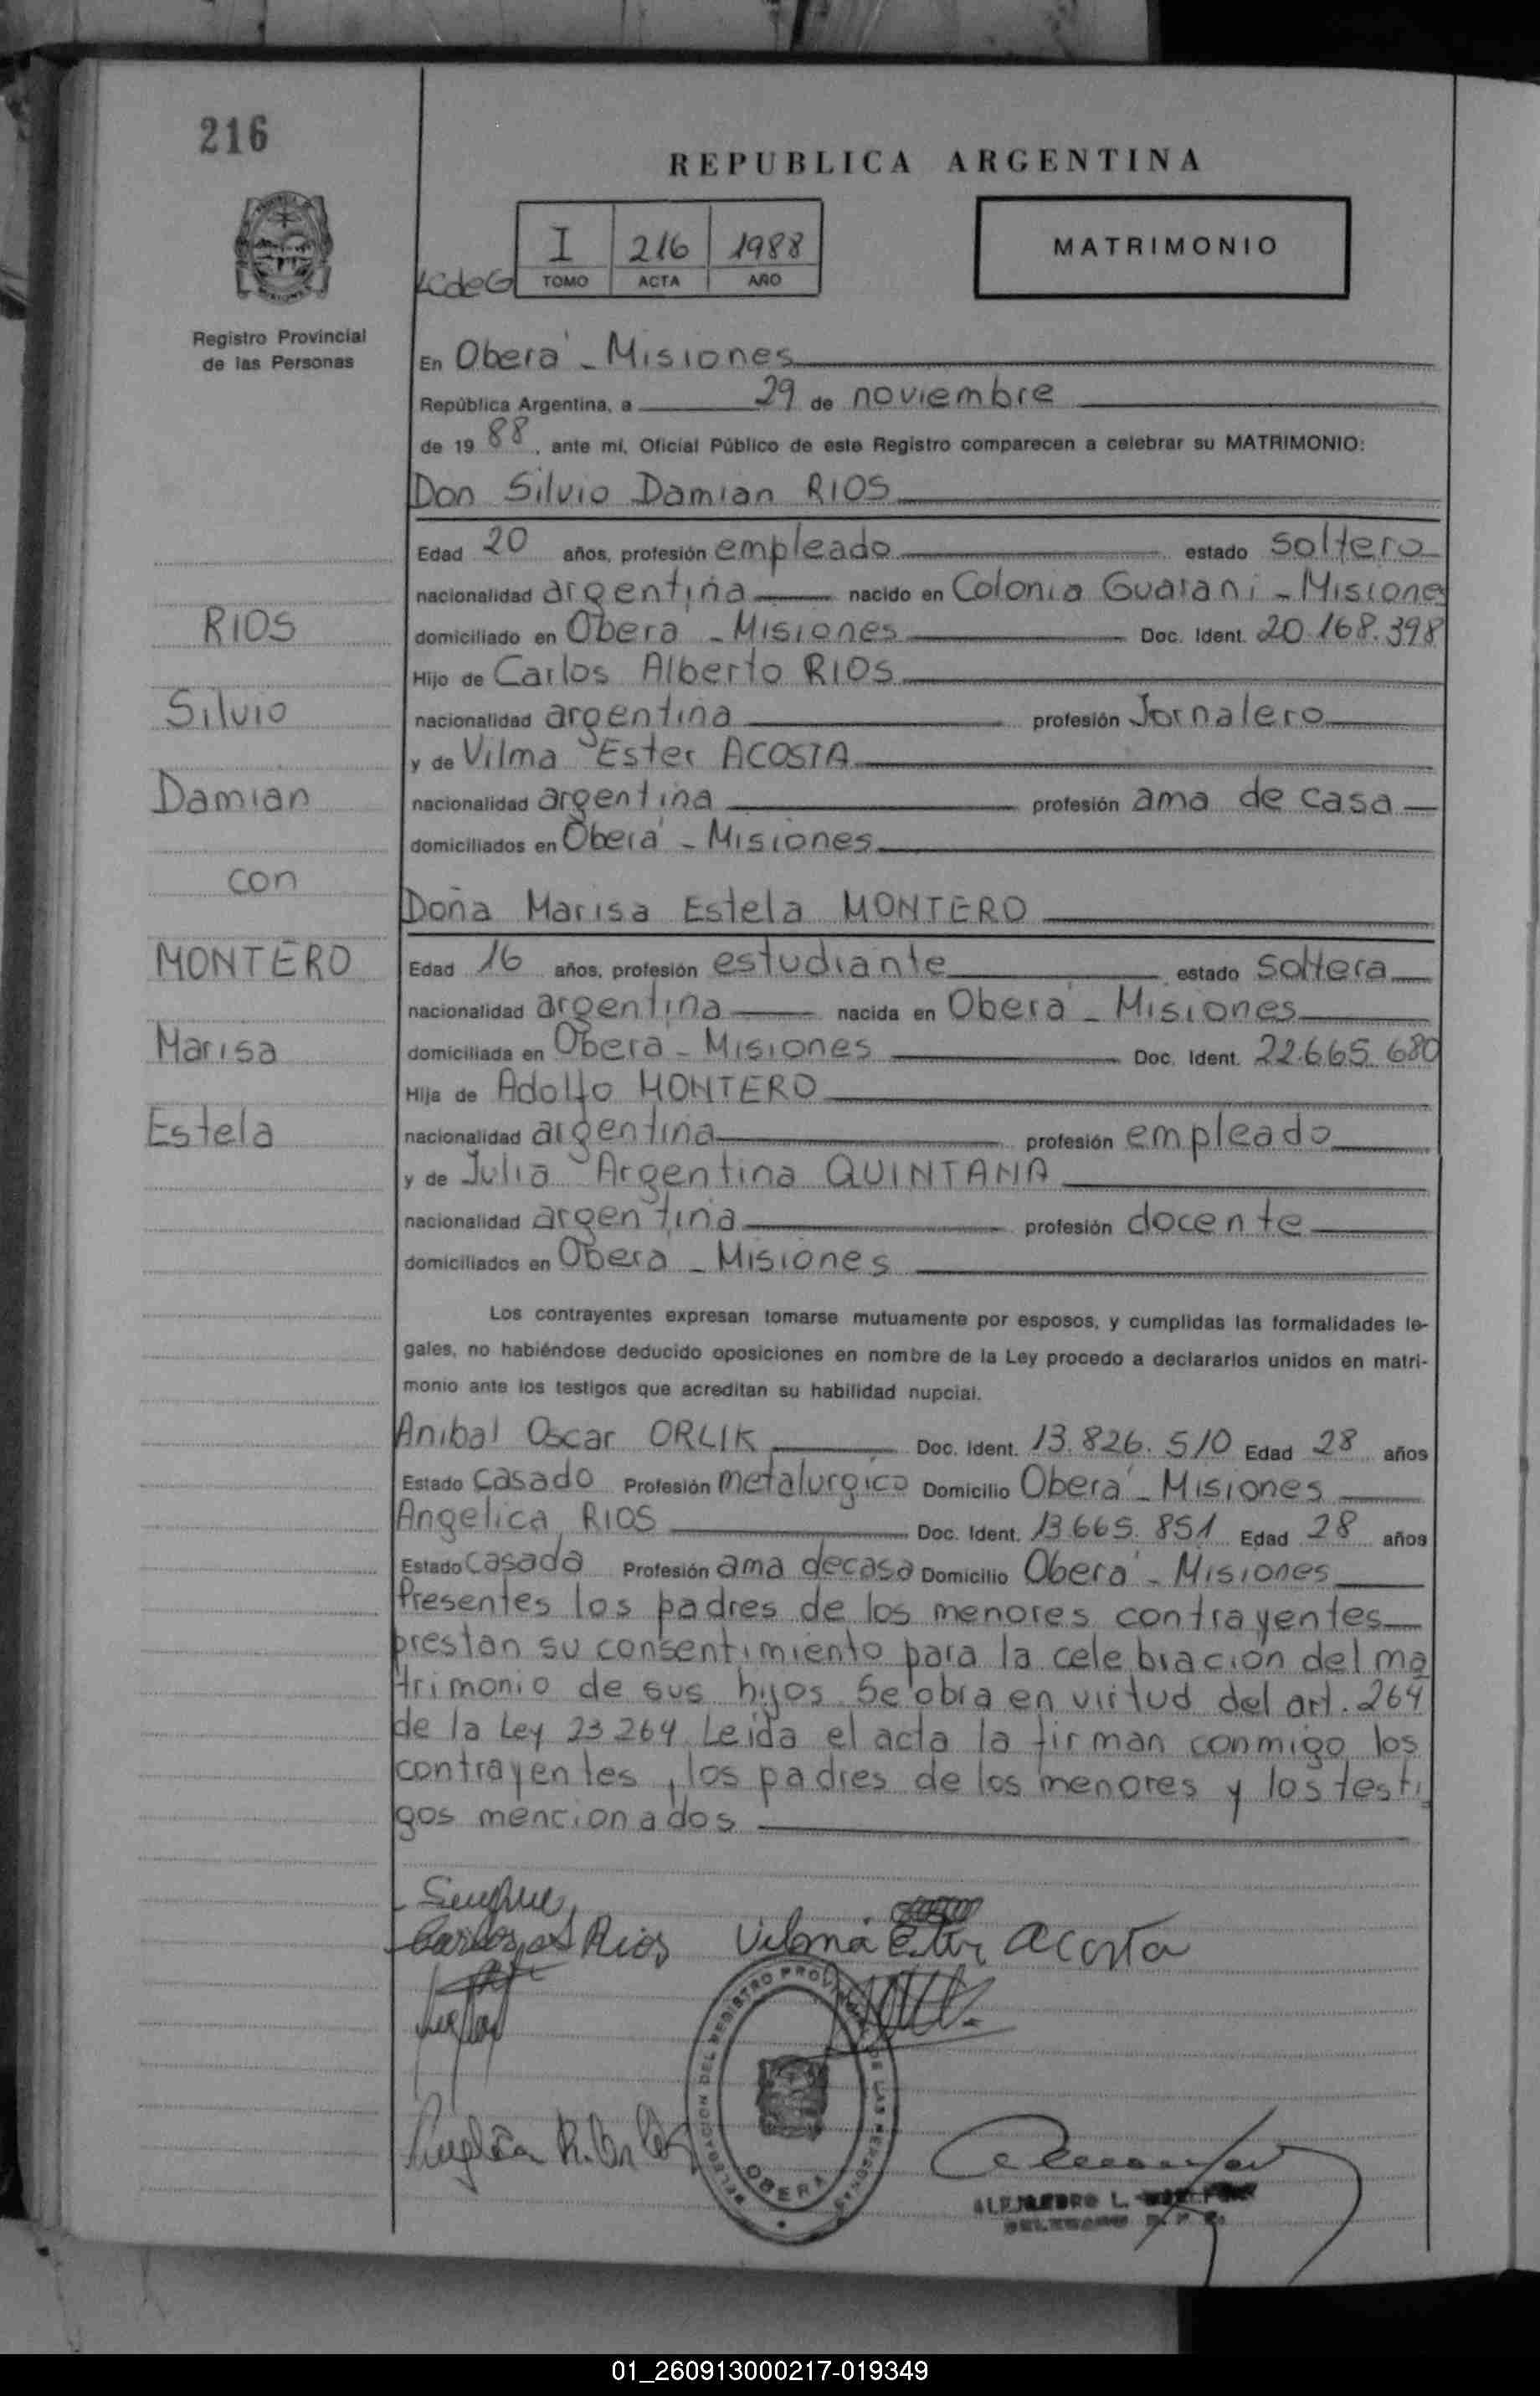 216
REPUBLICA ARGENTINA
I 216 1988
TOMO ACTA AÑO
MATRIMONIO
Registro Provincial
de las Personas
En Oberá - Misiones
República Argentina, a 29 de noviembre
de 19 88, ante mí, Oficial Público de este Registro comparecen a celebrar su MATRIMONIO:
Don Silvio Damian RIOS
Edad 20 años, profesión empleado estado soltero
nacionalidad argentina nacido en Colonia Guarani - Misiones
domiciliado en Obera - Misiones Doc. Ident. 20.168.398
Hijo de Carlos Alberto RIOS
nacionalidad argentina profesión Jornalero
y de Vilma Ester ACOSTA
nacionalidad argentina profesión ama de casa
domiciliados en Oberá - Misiones
RIOS
Silvio
Damian
con
MONTERO
Marisa
Estela
Doña Marisa Estela MONTERO
Edad 16 años, profesión estudiante estado soltera
nacionalidad argentina nacida en Oberá - Misiones
domiciliada en Obera - Misiones Doc. Ident. 22.665.680
Hija de Adolfo MONTERO
nacionalidad argentina profesión empleado
y de Julia Argentina QUINTANA
nacionalidad argentina profesión docente
domiciliados en Obera - Misiones
Los contrayentes expresan tomarse mutuamente por esposos, y cumplidas las formalidades le-
gales, no habiéndose deducido oposiciones en nombre de la Ley procedo a declararlos unidos en matri-
monio ante los testigos que acreditan su habilidad nupcial.
Anibal Oscar ORLIK Doc. Ident. 13.826.510 Edad 28 años
Estado casado Profesión metalurgico Domicilio Oberá - Misiones
Angelica RIOS Doc. Ident. 13.665.851 Edad 28 años
Estado casada Profesión ama de casa Domicilio Oberá - Misiones
Presentes los padres de los menores contrayentes
prestan su consentimiento para la celebracion del ma
trimonio de sus hijos. Se obra en virtud del art. 264
de la Ley 23264. Leida el acta la firman conmigo los
contrayentes, los padres de los menores y los testi
gos mencionados
Carlos A Rios Vilma Ester Acosta
DELEGACION DEL REGISTRO PROVINCIAL DE LAS PERSONAS
OBERA
ALEJANDRO L.
01_260913000217-019349